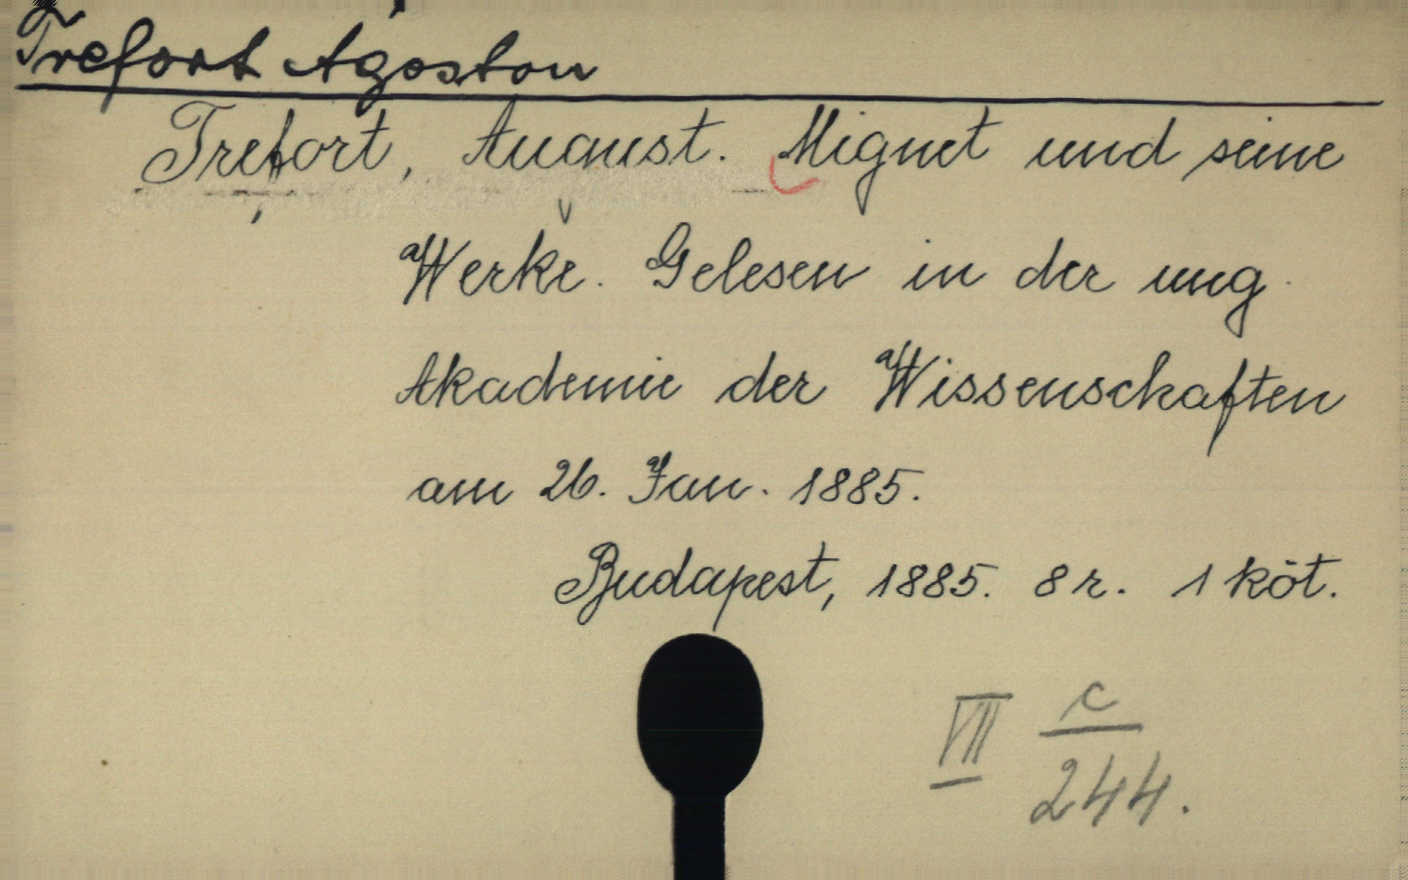 Trefort Ágoston
Trefort, August. Mignet und seine
Werke. Gelesen in der ung.
Akademie der Wissenschaften
am 26. Jan. 1885.
Budapest, 1885. 8r. 1 köt.
VII c
244.